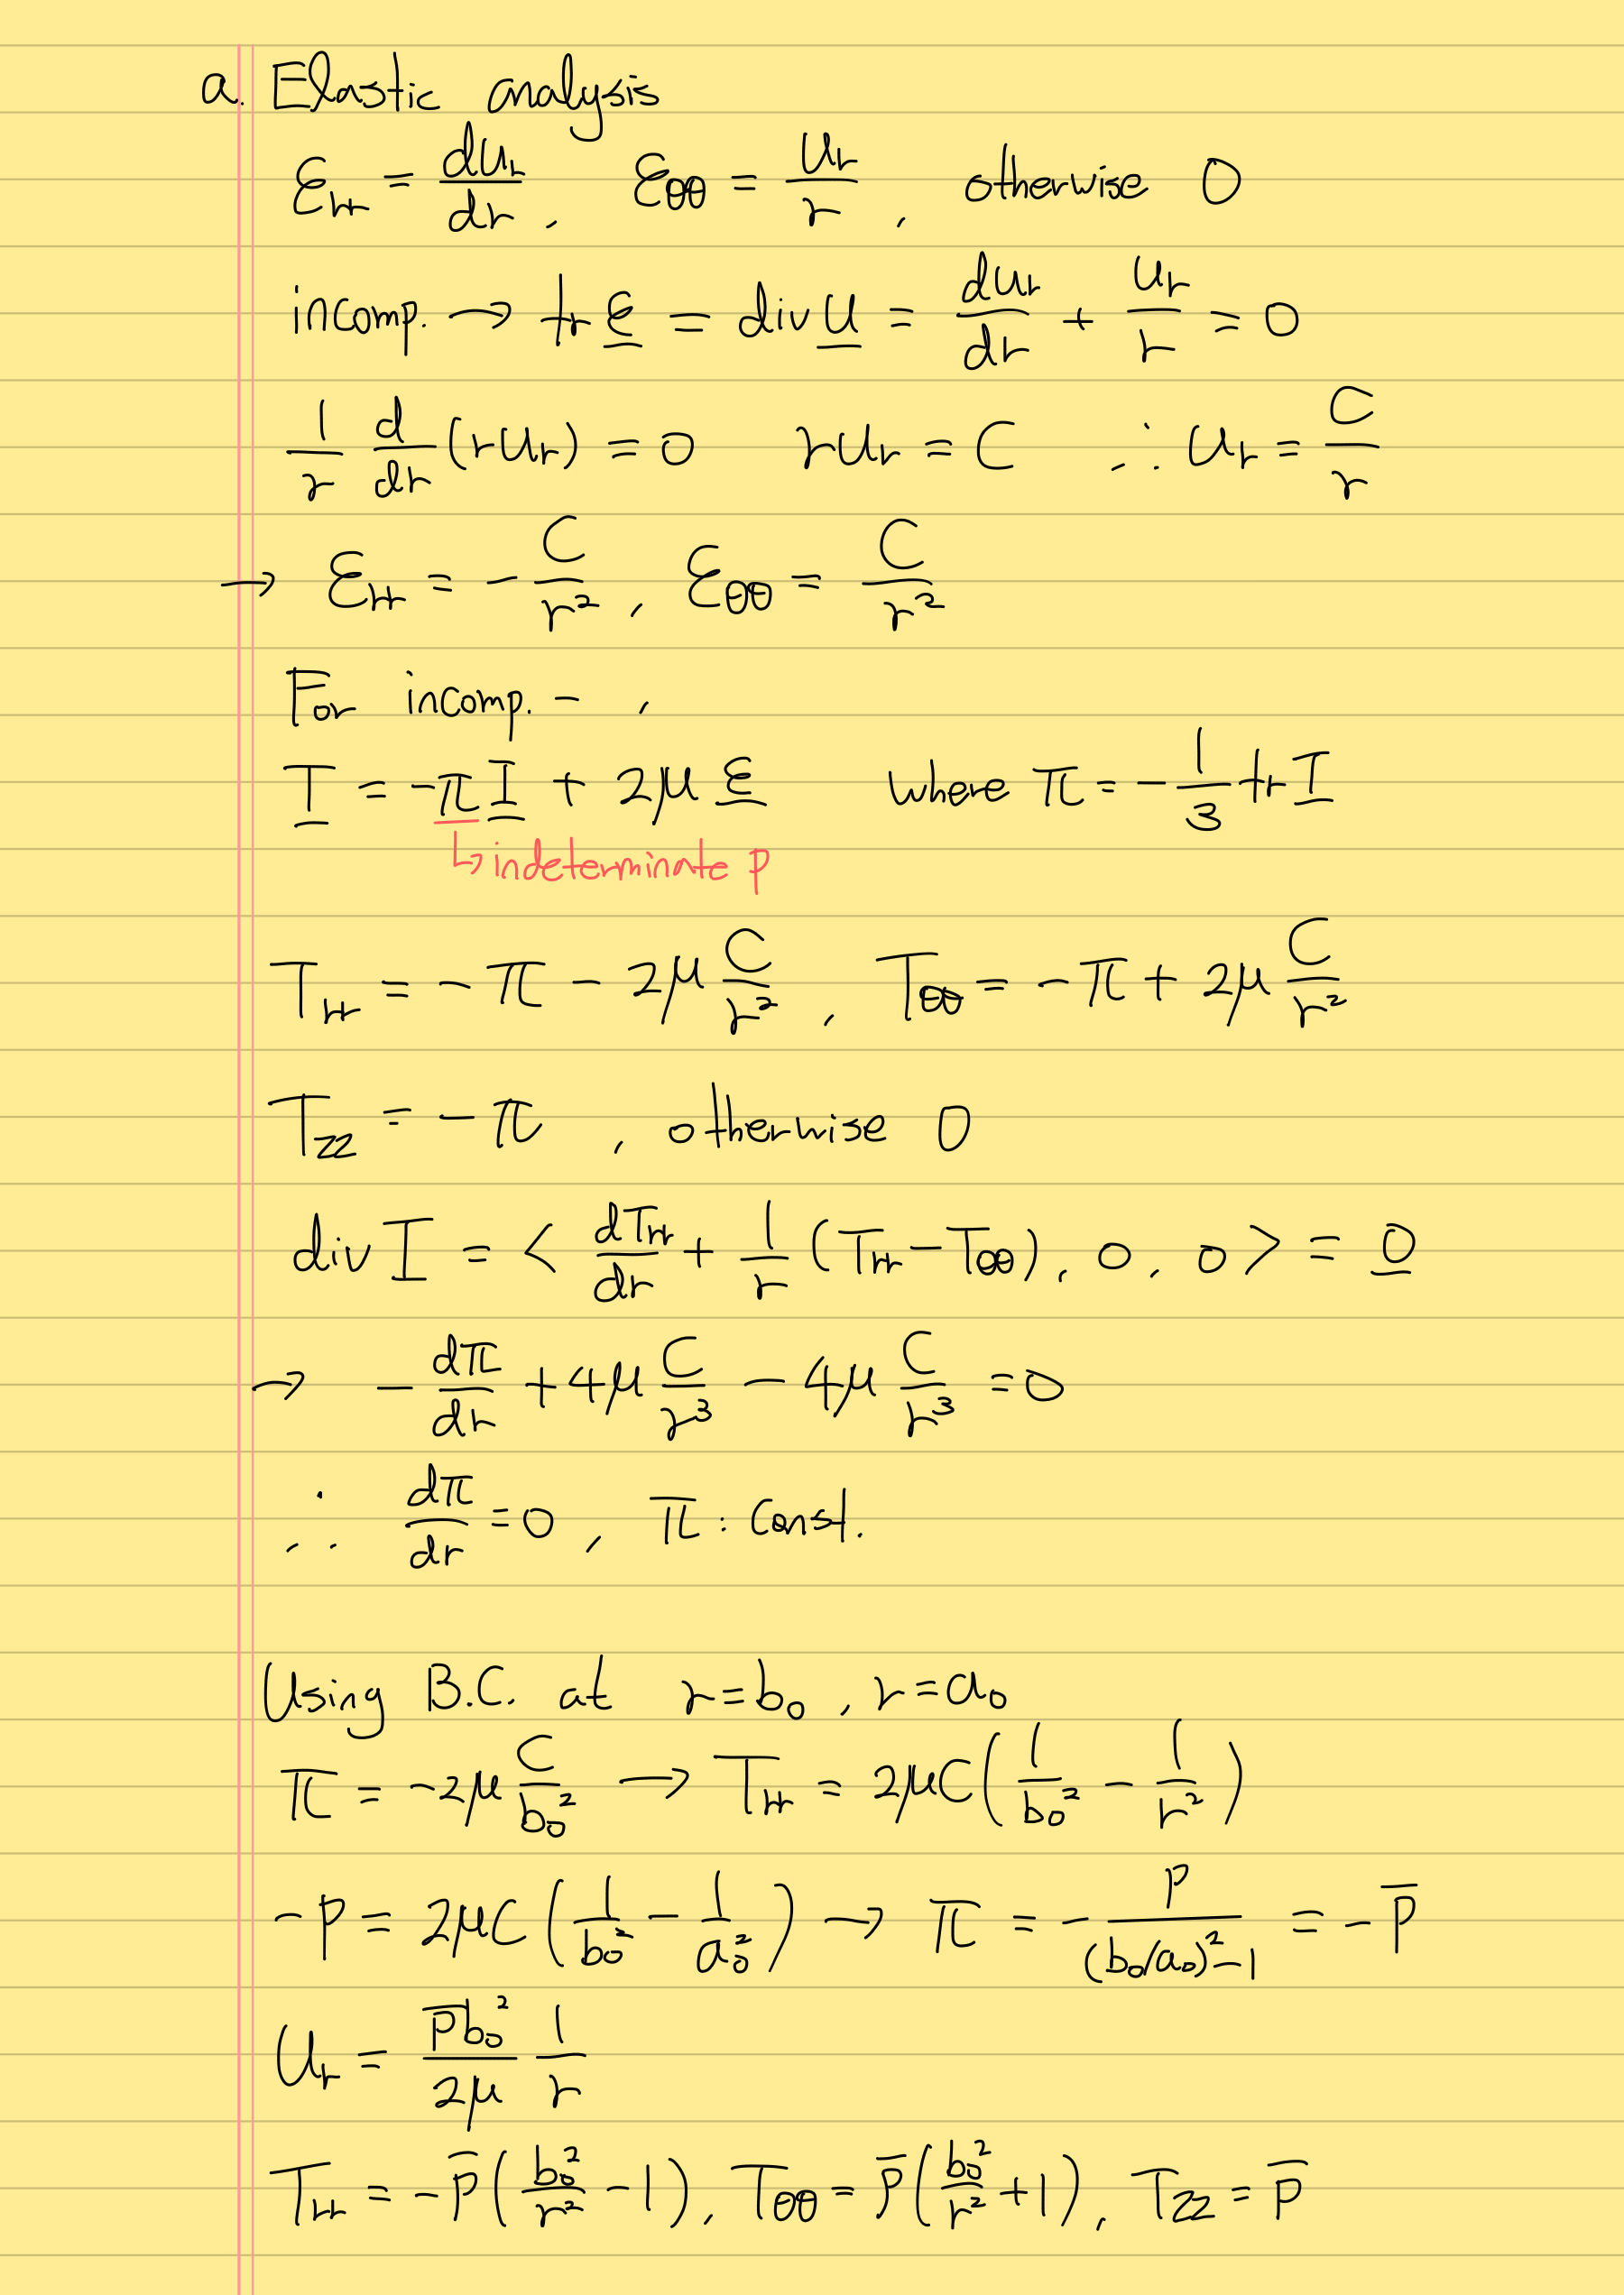 a. Elastic analysis
ε_rr = du_r/dr, ε_θθ = u_r/r, otherwise 0
incomp. → tr ε = div u = du_r/dr + u_r/r = 0
1/r d/dr (r u_r) = 0 r u_r = C ∴ u_r = C/r
→ ε_rr = - C/r², ε_θθ = C/r²
For incomp. - ,
T = -π I + 2μ ε where π = - 1/3 tr T
↳ indeterminate p
T_rr = -π - 2μ C/r², T_θθ = -π + 2μ C/r²
T_zz = -π , otherwise 0
div T = < dT_rr/dr + 1/r (T_rr - T_θθ), 0, 0 > = 0
→ - dπ/dr + 4μ C/r³ - 4μ C/r³ = 0
∴ dπ/dr = 0, π : const.
Using B.C. at r = b₀, r = a₀
π = -2μ C/b₀² → T_rr = 2μC (1/b₀² - 1/r²)
-p = 2μC (1/b₀² - 1/a₀²) → π = - p/((b₀/a₀)² - 1) = - p̄
u_r = p̄b₀²/2μ 1/r
T_rr = -p̄ (b₀²/r² - 1), T_θθ = p̄ (b₀²/r² + 1), T_zz = p̄